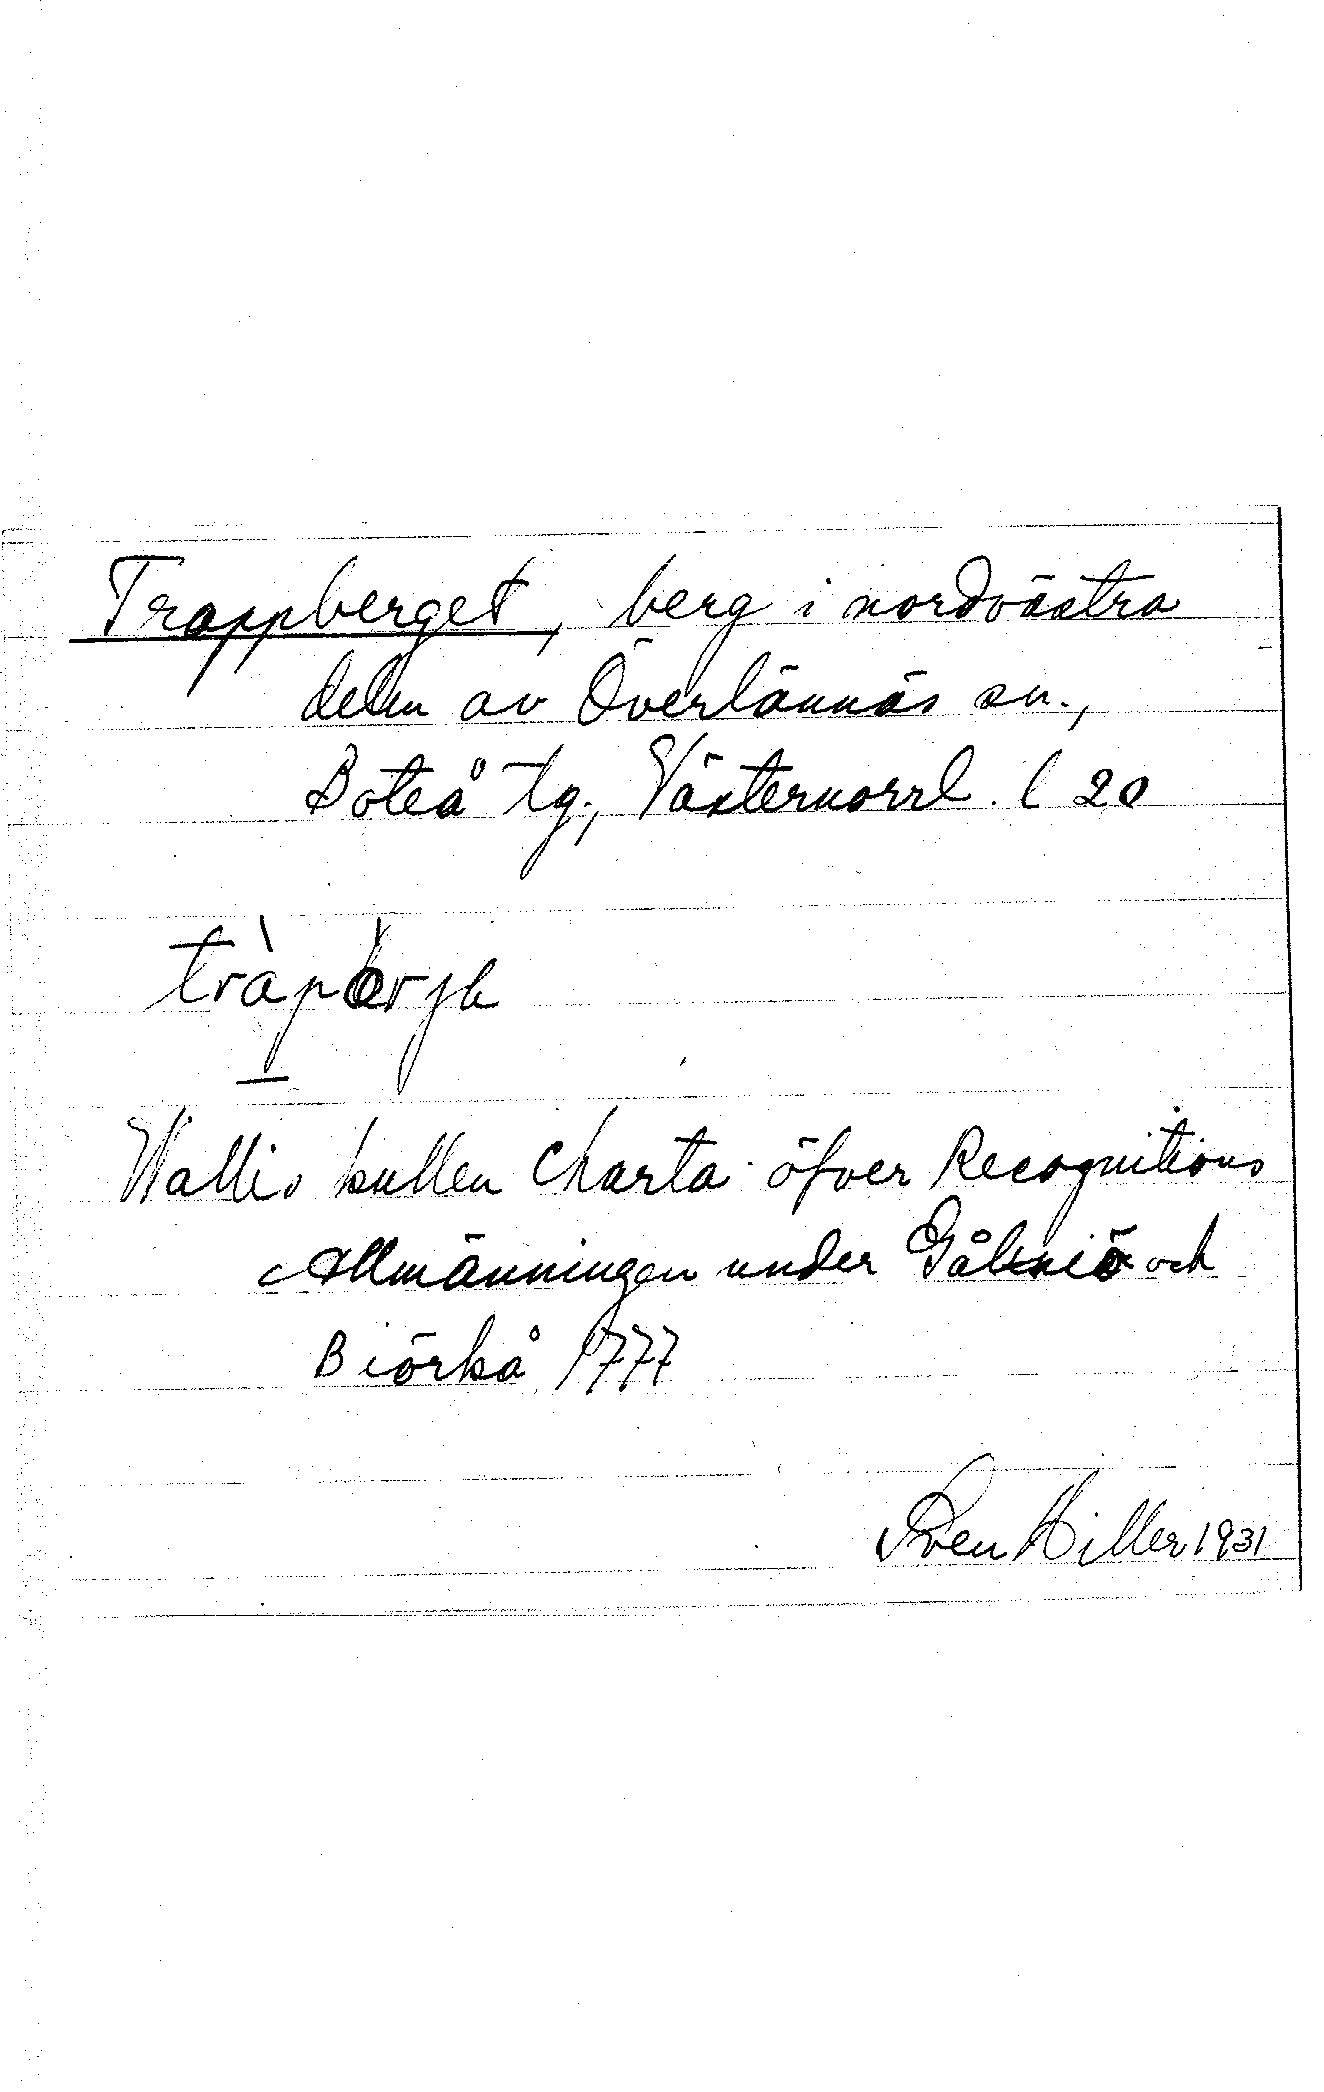 Trappberget, berg i nordvästra
delen av Överlännäs sn.,
Boteå tg., Västernorrl. l 20
Wallis kullen Charta öfver Recognitions
Allmänningen under Gålsiö och
Biörkå 1777
Sven Hiller 1931